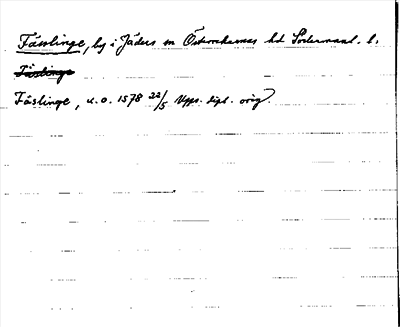 Fässlinge, by i Jäders sn Österrekarnes hd Södermanl. l.
Fäslinge
Fäslinge, u.o. 1578 22/5 Upps. dipl. orig.